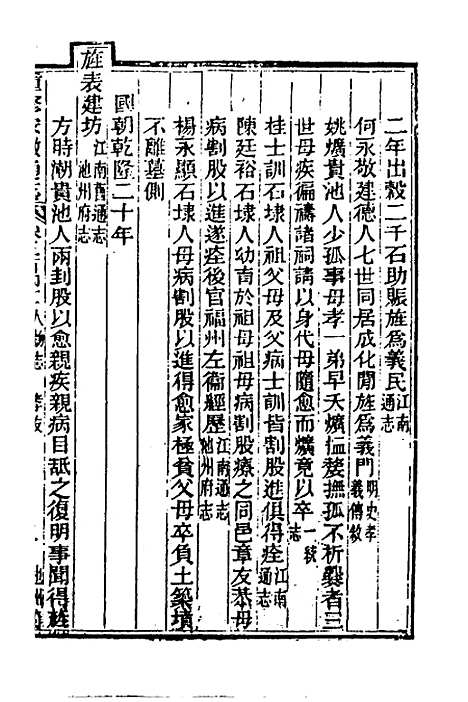 二年出穀二千石助賑旌爲義民江南通志
何永敬建德人七世同居成化閒旌爲義門明史孝義傳敘
姚爌貴池人少孤事母孝一弟早夭爌恤嫠撫孤不析爨者三
世母疾徧禱諸祠請以身代母隨愈而爌竟以卒一統志
桂士訓石埭人祖父母及父病士訓皆割股進俱得痊江南通志
陳廷裕石埭人幼育於祖母祖母病割股療之同邑章友恭母
病割股以進遂痊後官福州左衞經歷江南通志池州府志
楊永顯石埭人母病割股以進得愈家極貧父母卒負土築墳
不離墓側
國朝乾隆二十年
旌表建坊江南舊通志池州府志
方時潮貴池人兩刲股以愈親疾親病目舐之復明事聞得旌
重修安徽通志
人物志 孝友